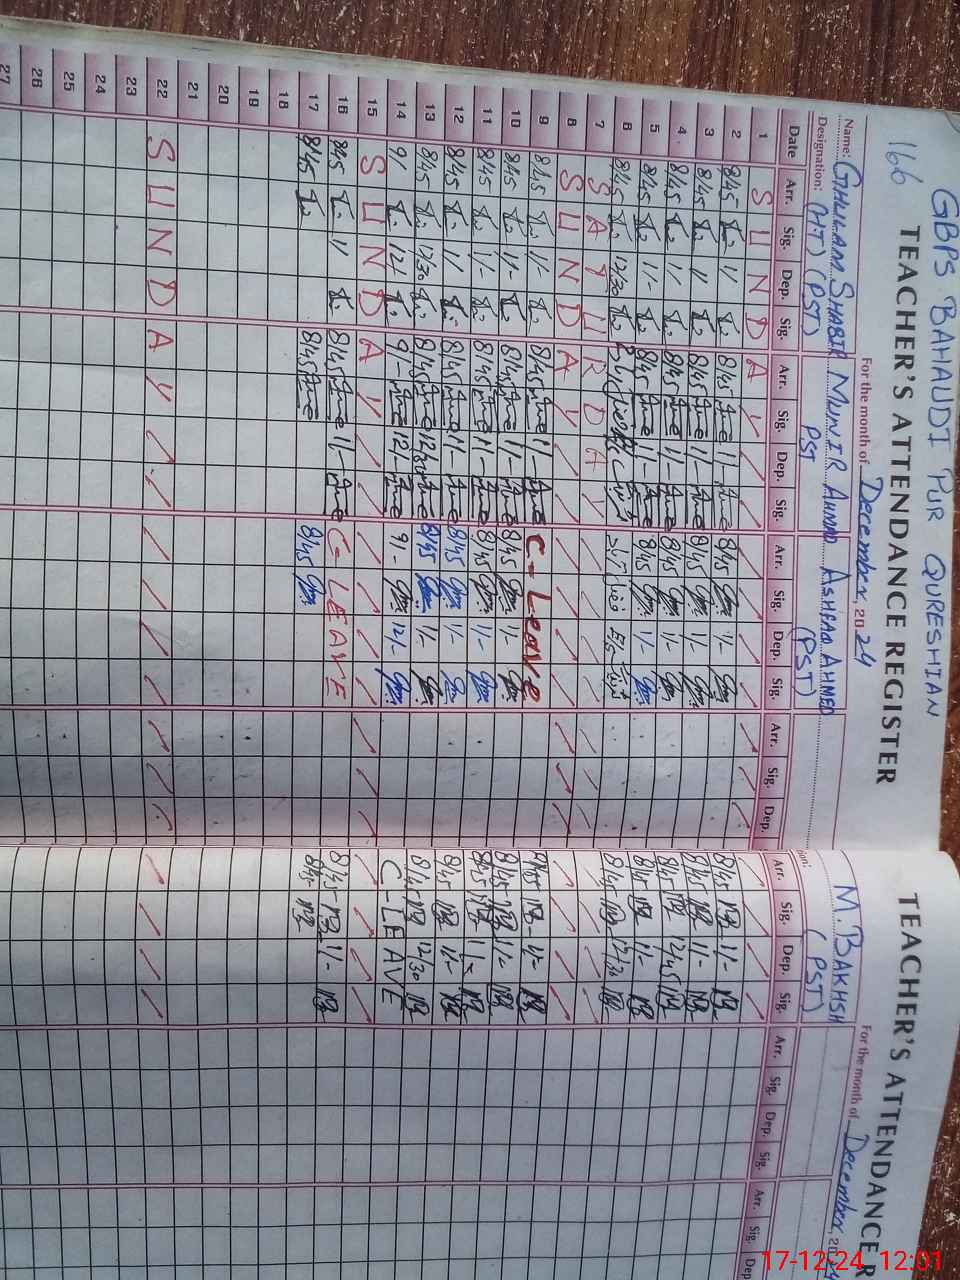 GBPS BAHAUDI PUR QURESHIAN
166 TEACHER'S ATTENDANCE REGISTER
For the month of December, 2024
Name: GHULAM SHABIR MUNIR AHMAD ASHFAQ AHMED
Designation: (HT) (PST) PST (PST)
Date Arr. Sig. Dep. Sig. Arr. Sig. Dep. Sig. Arr. Sig. Dep. Sig. Arr. Sig. Dep.
1 S U N D A Y
2 8/45 1/ 8/45 1/- 8/45 1/-
3 8/45 1/ 8/45 1/- 8/45 1/-
4 8/45 1/- 8/45 1/- 8/45 1/-
5 8/45 1/- 8/45 1/- 8/45 1/-
6 8/45 12/30
7 S A T U R D A Y
8 S U N D A Y
9 8/45 1/- 8/45 1/- C-Leave
10 8/45 1/- 8/45 1/- 8/45 1/-
11 8/45 1/- 8/45 1/- 8/45 1/-
12 8/45 1/- 8/45 1/- 8/45 1/-
13 8/45 12/30 8/45 12/30 8/45 1/-
14 9/ 12/ 9/- 12/- 9/- 12/-
15 S U N D A Y
16 8/45 1/ 8/45 1/- C-LEAVE
17 8/45 8/45 8/45
18
19
20
21
22 S U N D A Y
23
24
25
26
27
TEACHER'S ATTENDANCE R
For the month of December, 2024
M. BAKHSH
(PST)
Arr. Sig. Dep. Sig. Arr. Sig. Dep. Sig. Arr. Sig. Dep
8/45 MB 1/- MB
8/45 MB 1/- MB
8/45 MB 12/45 MB
8/45 MB 1/- MB
8/45 MB 12/30 MB
8/45 MB 1/- MB
8/45 MB 1/- MB
8/45 MB 1/- MB
8/45 MB 1/- MB
8/45 MB 12/30 MB
C-LEAVE
8/45 MB 1/- MB
8/45 MB
17-12-24 12:01